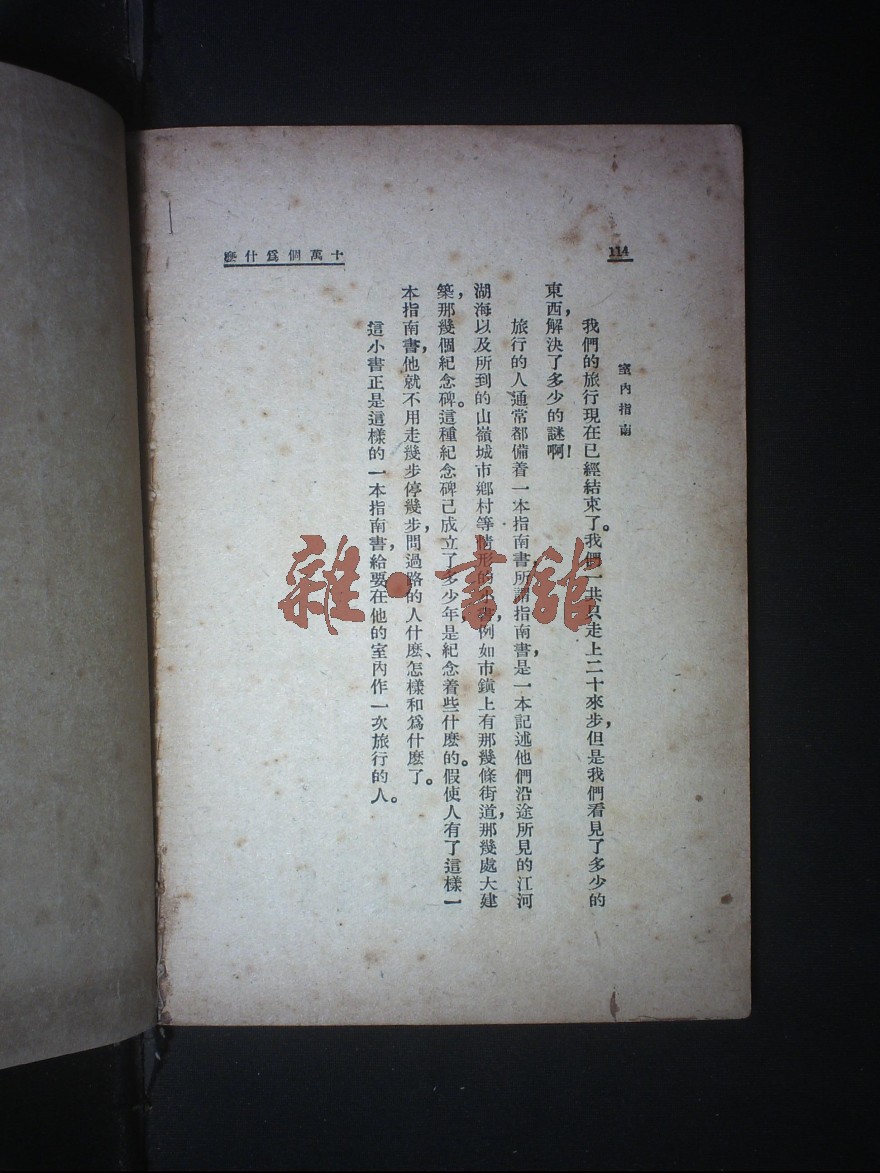 114
十萬個爲什麽
室內指南
我們的旅行現在已經結束了。我們一共只走上二十來步，但是我們看見了多少的
東西，解決了多少的謎啊！
旅行的人通常都備着一本指南書所謂指南書，是一本記述他們沿途所見的江河
湖海以及所到的山嶺城市鄉村等情形的小書，例如市鎮上有那幾條街道，那幾處大建
築，那幾個紀念碑。這種紀念碑已成立了多少年，是紀念着些什麽的。假使人有了這樣一
本指南書，他就不用走幾步停幾步，問過路的人什麽、怎樣和爲什麽了。
這小書正是這樣的一本指南書，給要在他的室內作一次旅行的人。
雜·書館